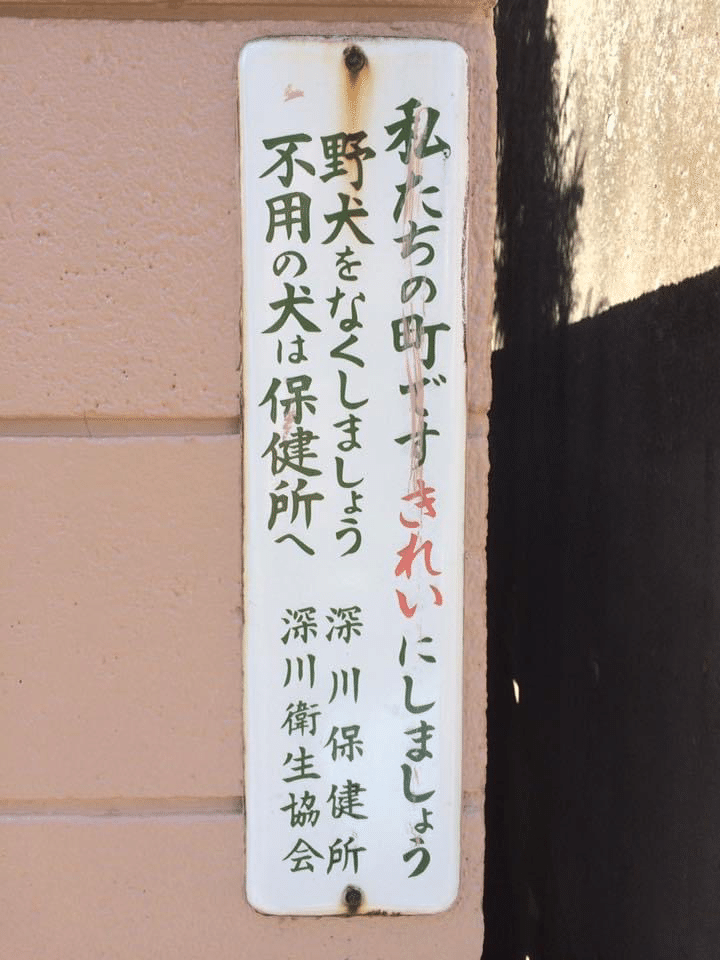 私たちの町ですきれいにしましょう
野犬をなくしましょう
不用の犬は保健所へ
深川保健所
深川衛生協会